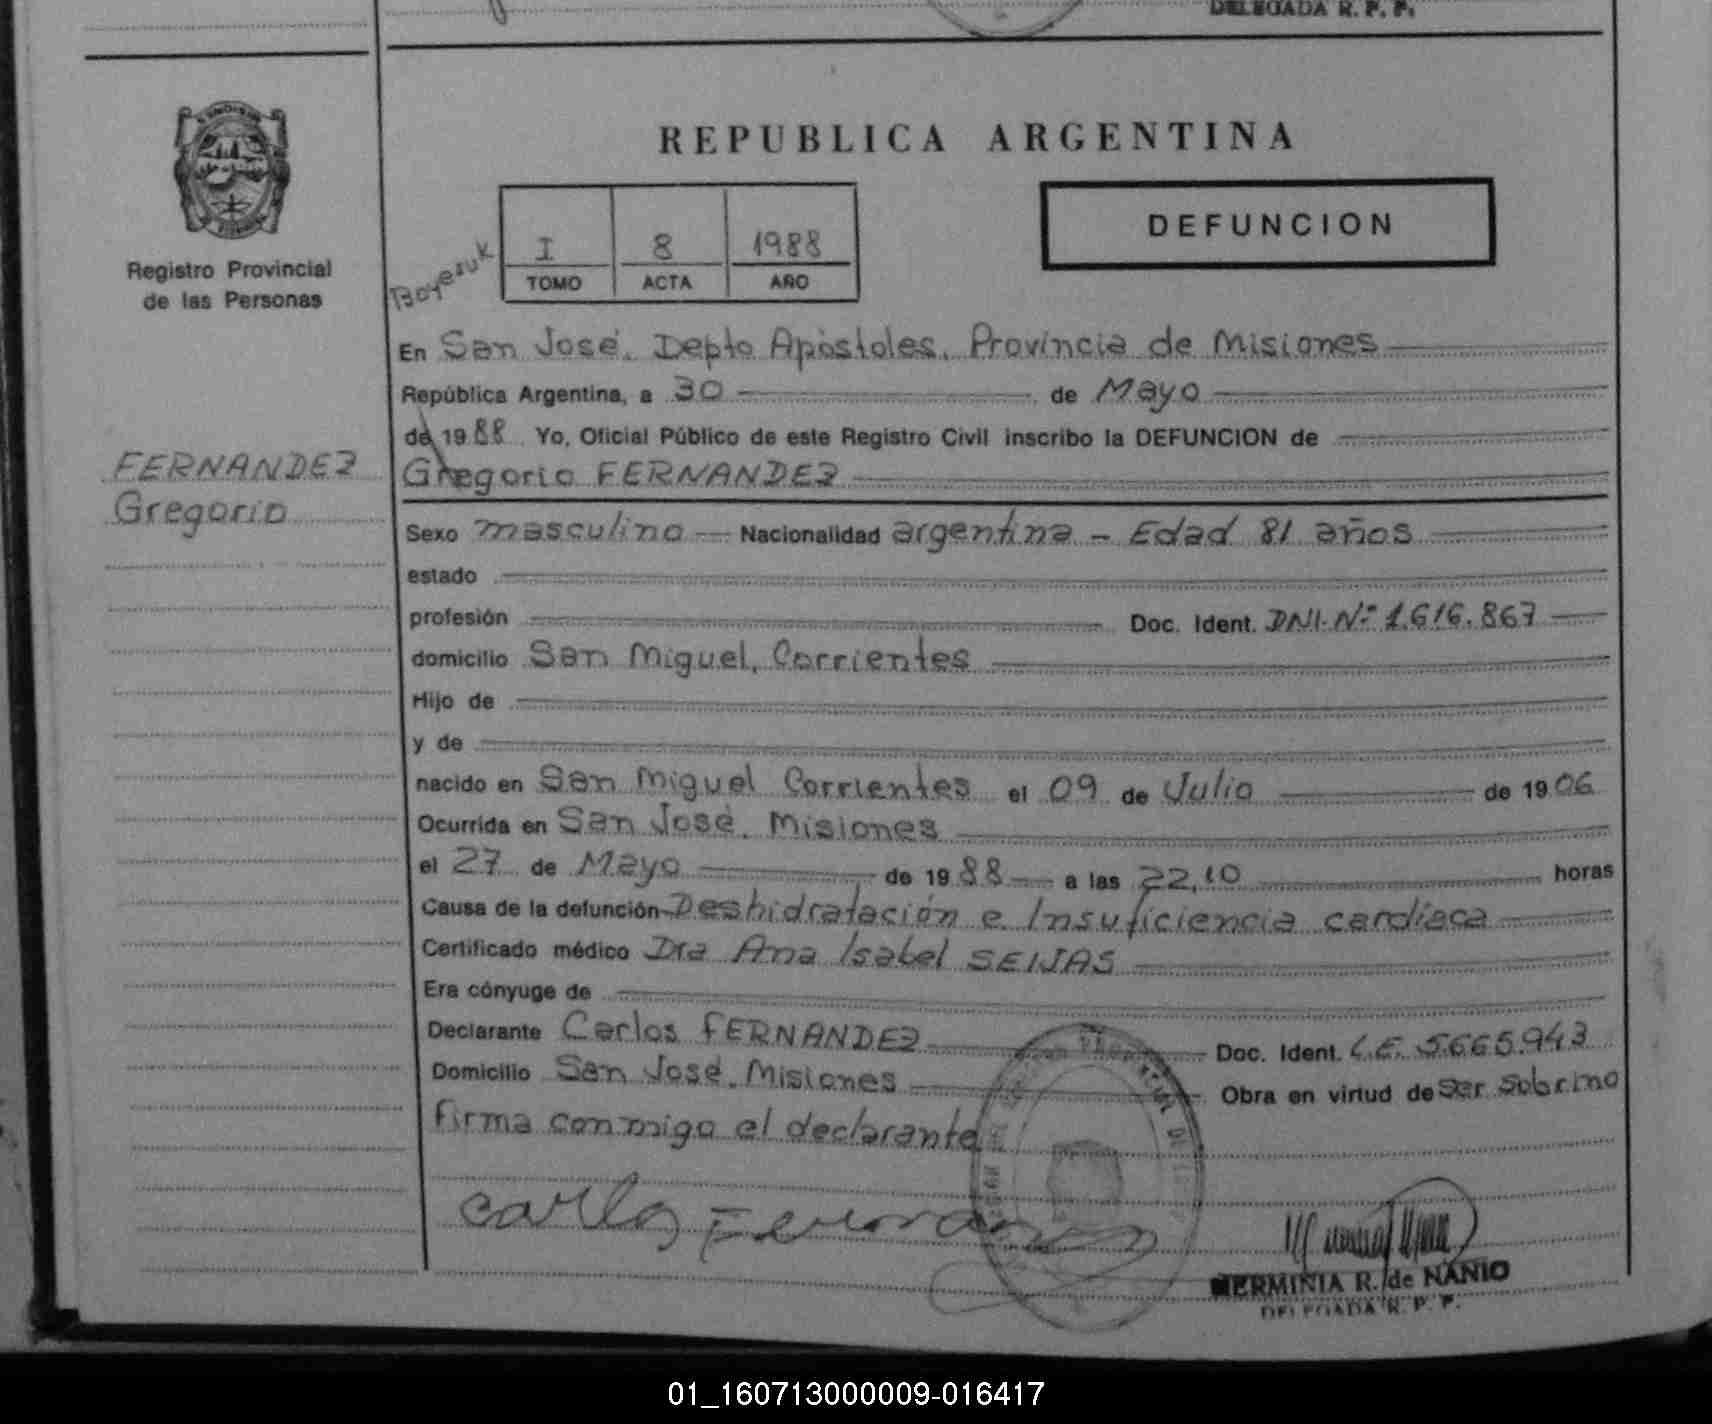 DELEGADA R. P. P.
Registro Provincial
de las Personas
REPUBLICA ARGENTINA
I 8 1988
TOMO ACTA AÑO
DEFUNCION
En San José, Depto Apóstoles, Provincia de Misiones
República Argentina, a 30 de Mayo
de 1988 Yo, Oficial Público de este Registro Civil inscribo la DEFUNCION de
FERNANDEZ
Gregorio
Gregorio FERNANDEZ
Sexo masculino Nacionalidad argentina - Edad 81 años
estado
profesión Doc. Ident. DNI. Nº 1.616.867
domicilio San Miguel, Corrientes
Hijo de
y de
nacido en San Miguel Corrientes el 09 de Julio de 1906
Ocurrida en San José, Misiones
el 27 de Mayo de 1988 a las 22,10 horas
Causa de la defunción Deshidratación e Insuficiencia cardíaca
Certificado médico Dra Ana Isabel SEIJAS
Era cónyuge de
Declarante Carlos FERNANDEZ Doc. Ident. L.E. 5.665.943
Domicilio San José, Misiones Obra en virtud de ser sobrino
Firma conmigo el declarante
Carlos Fernandez
HERMINIA R. de NANIO
DELEGADA R. P. P.
01_160713000009-016417